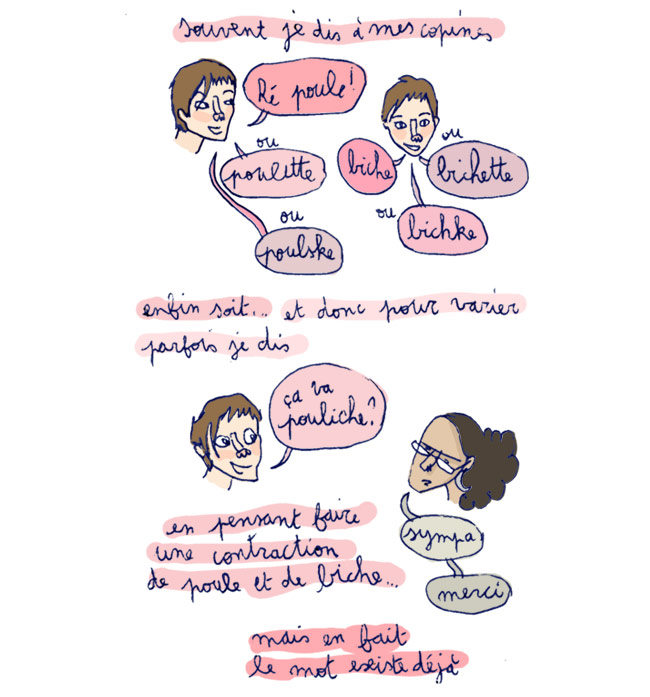 souvent je dis à mes copines
Hé poule!
ou
poulette
ou
poulske
biche
ou
bichette
ou
bichke
enfin soit... et donc pour varier
parfois je dis
ça va
pouliche?
sympa
merci
en pensant faire
une contraction
de poule et de biche...
mais en fait
le mot existe déjà